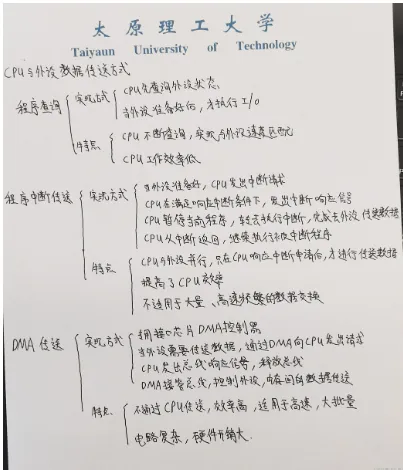 太原理工大学
Taiyaun University of Technology
CPU与外设数据传送方式
程序查询
实现方式
CPU先查询外设状态
当外设准备好后，才执行I/O
特点
CPU不断查询，实现与外设速度匹配
CPU工作效率低
程序中断传送
实现方式
当外设准备好，CPU发出中断请求
CPU在满足响应中断条件下，发出中断响应信号
CPU暂停当前程序，转去执行中断，完成与外设传送数据
CPU从中断返回，继续执行被中断程序
特点
CPU与外设并行，只在CPU响应中断申请后，才进行传送数据
提高了CPU效率
不适用于大量、高速频繁的数据交换
DMA传送
实现方式
利用接口芯片DMA控制器
当外设需要传送数据，通过DMA向CPU发出请求
CPU发出总线响应信号，释放总线
DMA接管总线，控制外设，内存间的数据传送
特点
不通过CPU传送，效率高，适用于高速，大批量
电路复杂，硬件开销大